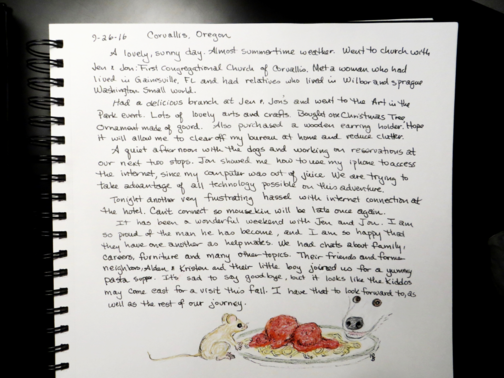 9-26-16 Corvallis, Oregon
A lovely, sunny day. Almost summertime weather. Went to church with
Jen & Jon: First Congregational Church of Corvallis. Met a woman who had
lived in Gainsville, FL and had relatives who lived in Wilbor and sprague
Washington. Small world.
Had a delicious branch at Jen & Jon's and went to the Art in the
Park event. Lots of lovely arts and crafts. Bought one Christmas Tree
Ornament made of gourd. Also purchased a wooden earring holder. Hope
it will allow me to clear off my bureau at home and reduce clutter.
A quiet afternoon with the dogs and working on reservations at
our next two stops. Jan showed me how to use my iphone to access
the internet, since my computer was out of juice. We are trying to
take advantage of all technology possible on this adventure.
Tonight another very frustrating hassel with internet connection at
the hotel. Can't connect so mousekin will be late once again.
It has been a wonderful weekend with Jen and Jon. I am
so proud of the man he has become, and I am so happy that
they have one another as helpmates. We had chats about family,
careers, furniture and many other topics. Their friends and former
neighbors, & Kristen and their little boy joined us for a yummy
pasta supper. It's sad to say goodbye, but it looks like the kiddos
may come east for a visit this fall. I have that to look forward to, as
well as the rest of our journey.